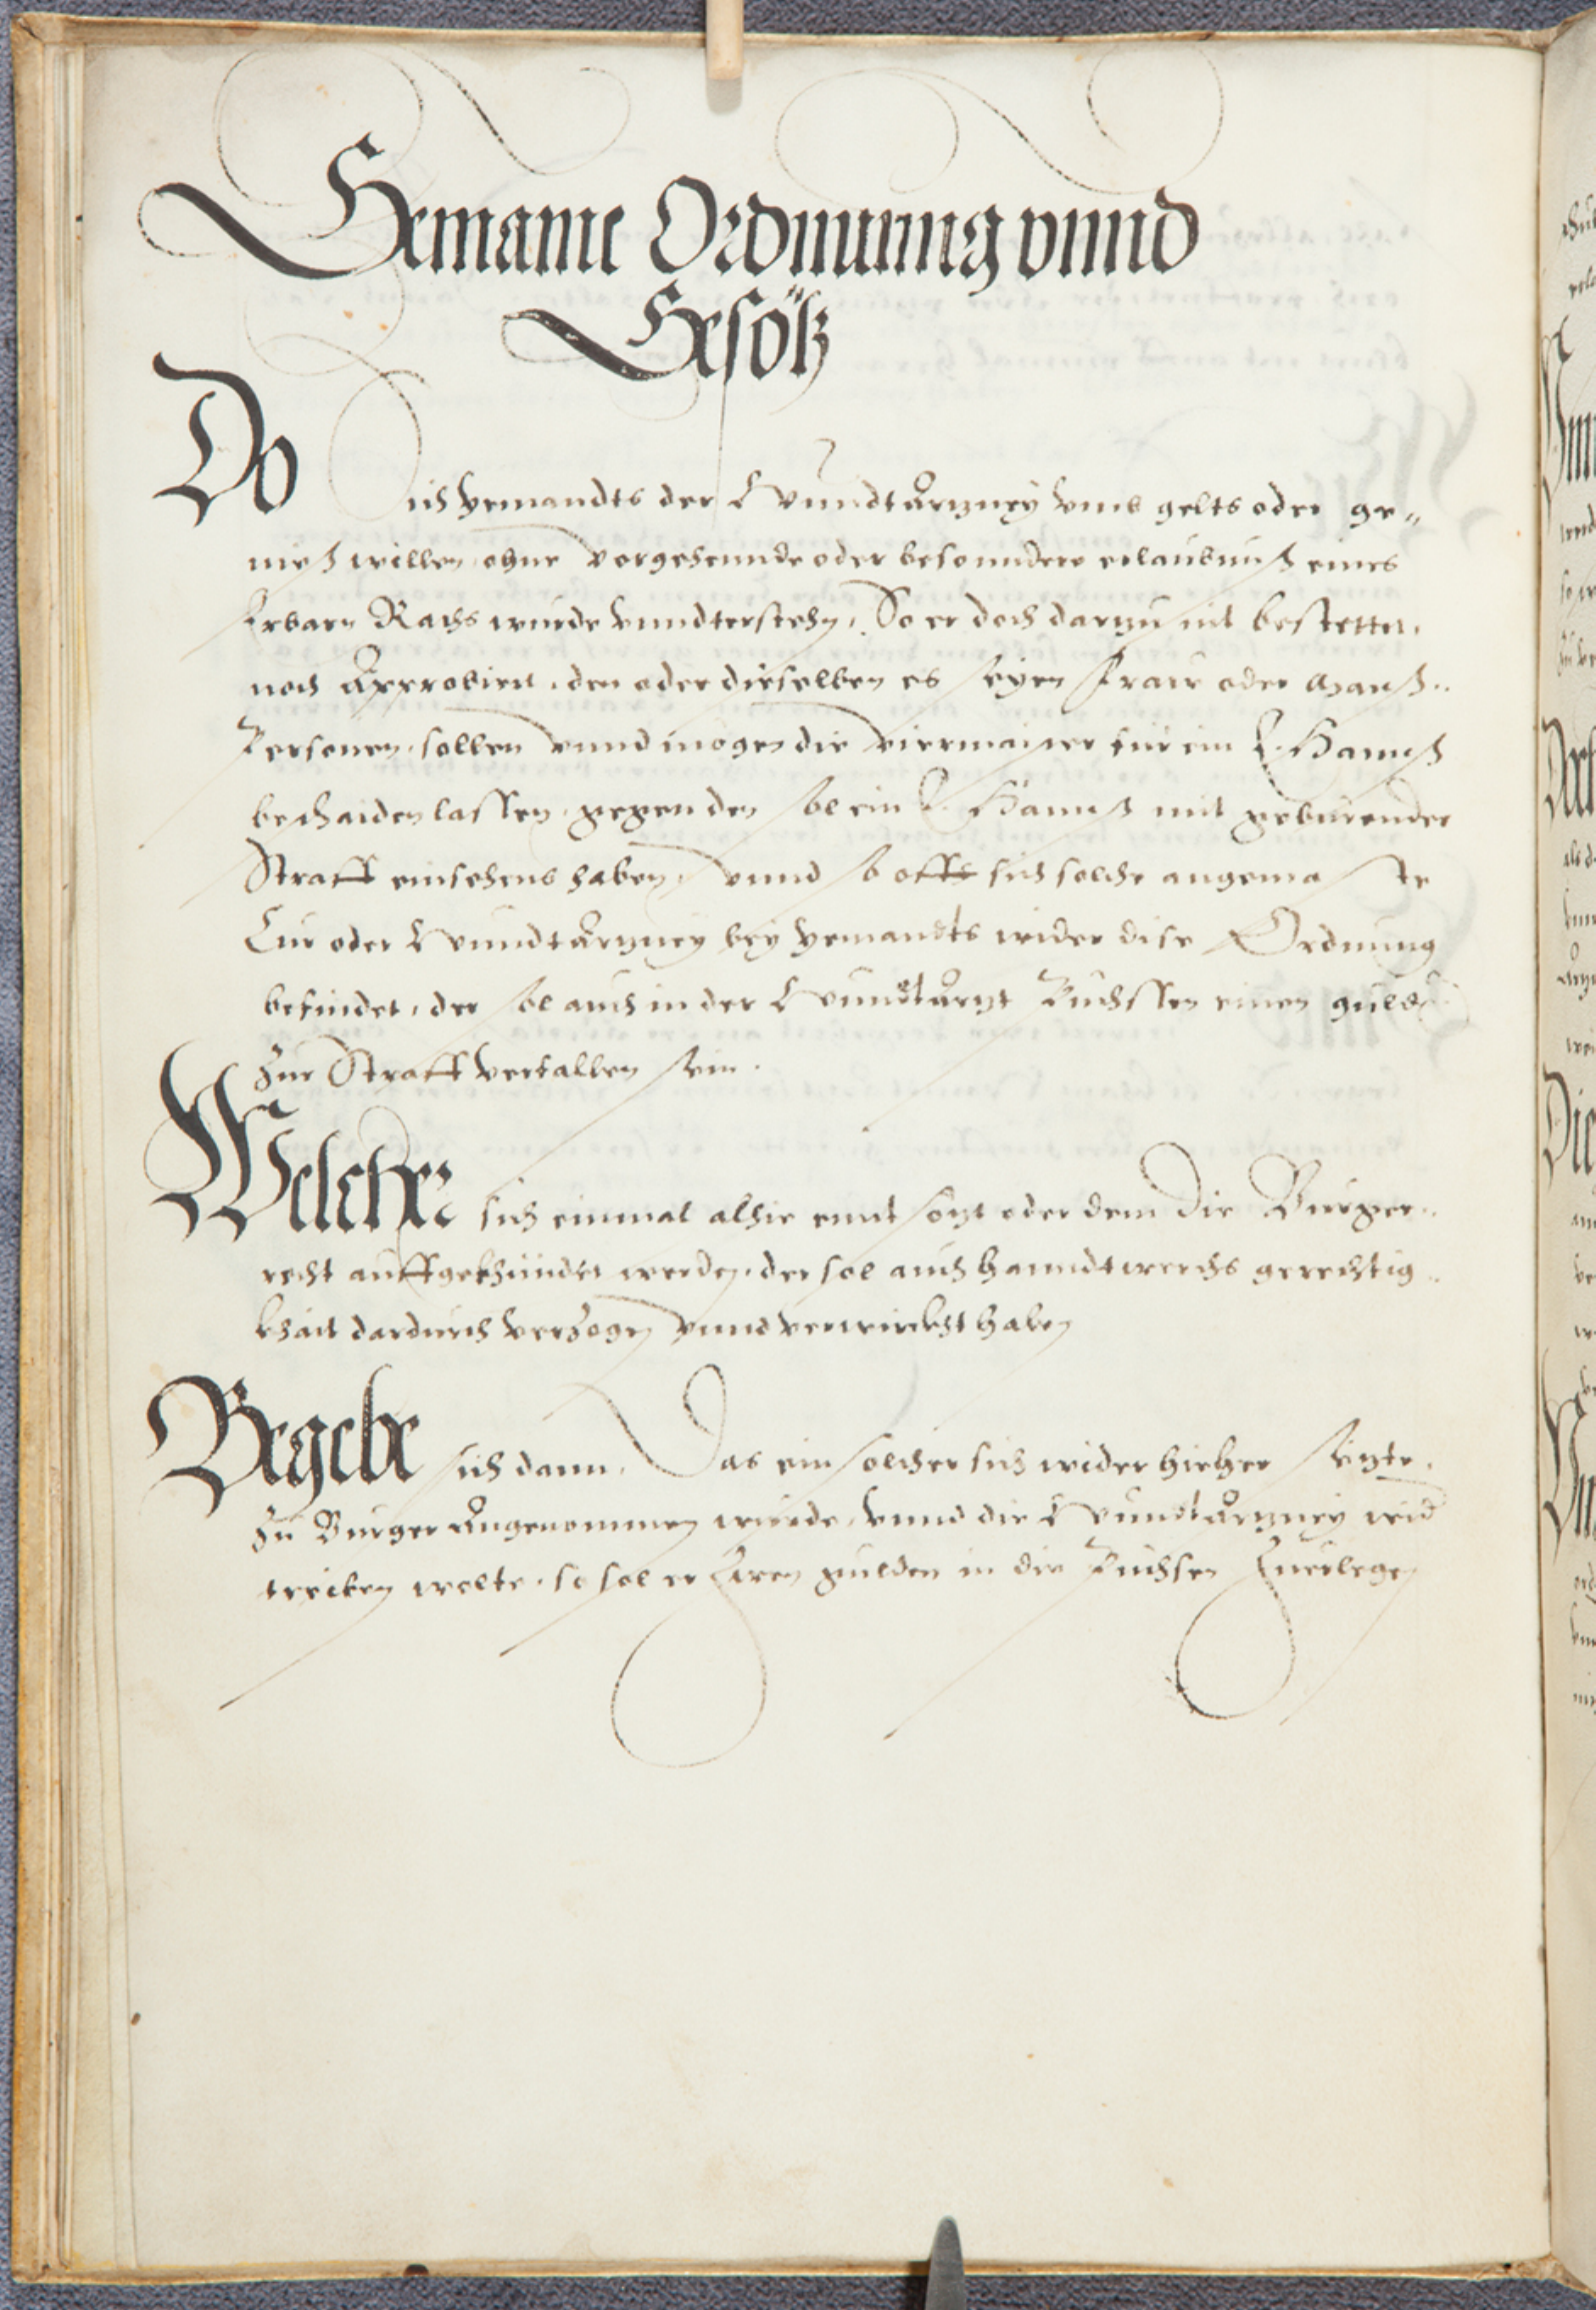 Gemaine Ordnunng vnnd
Gesötz
Do sich yemandts der Wundtärtzney vmb gelts oder ge„
nieß willen ohne vorgehennde oder besonndere erlaubnuß eines
Erbarn Raths wurde vnndterstehn, So er doch dartzu nit bestettet,
noch Approbiert, den oder dieselben es seyen Fraw oder Manß„
Personen, sollen vnnd mögen die viermaister für ein E. Hannß
beschaiden lassen, gegen den sol ein E. Hannß mit geburender
Straff einsehens haben, vnnd so offt sich solche angemaste
Cur oder Wundtärtzney bey yemandts wider dise Ordnung
befindet, der sol auch in der Wundtärtzt Buchssen einen guld
zur Straff verfallen sein.
Welcher sich einmal alhie enntsötzt oder dem die Burger„
recht auffgekhündet werden, der sol auch hanndtwerchs gerechtig„
khait dardurch verzogen vnnd verwirckht haben
Begebe sich dann, Das ein solcher sich wider hieher setzte,
zu Burger angenommen wurde, vnnd die Wundtärtzney wid
treiben wolte, so sol er Zwen gulden in die Buchsen Zuerlegen